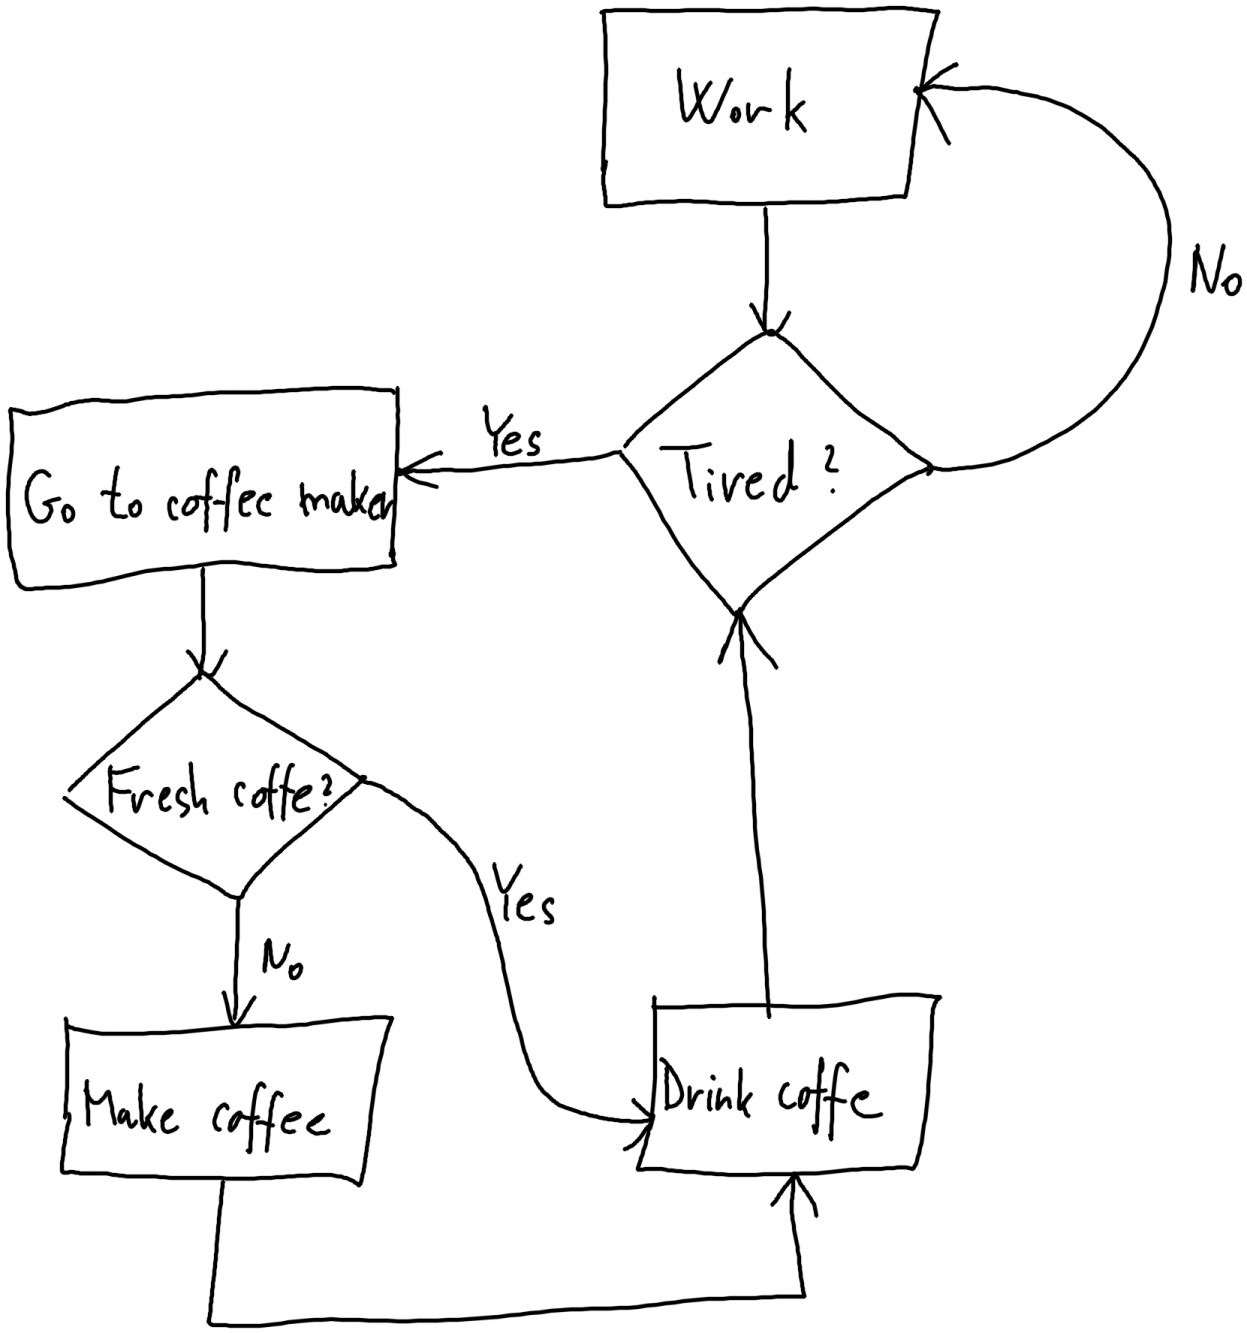 Work
No
Yes
Tired?
Go to coffee maker
Fresh coffe?
Yes
No
Make coffee
Drink coffe